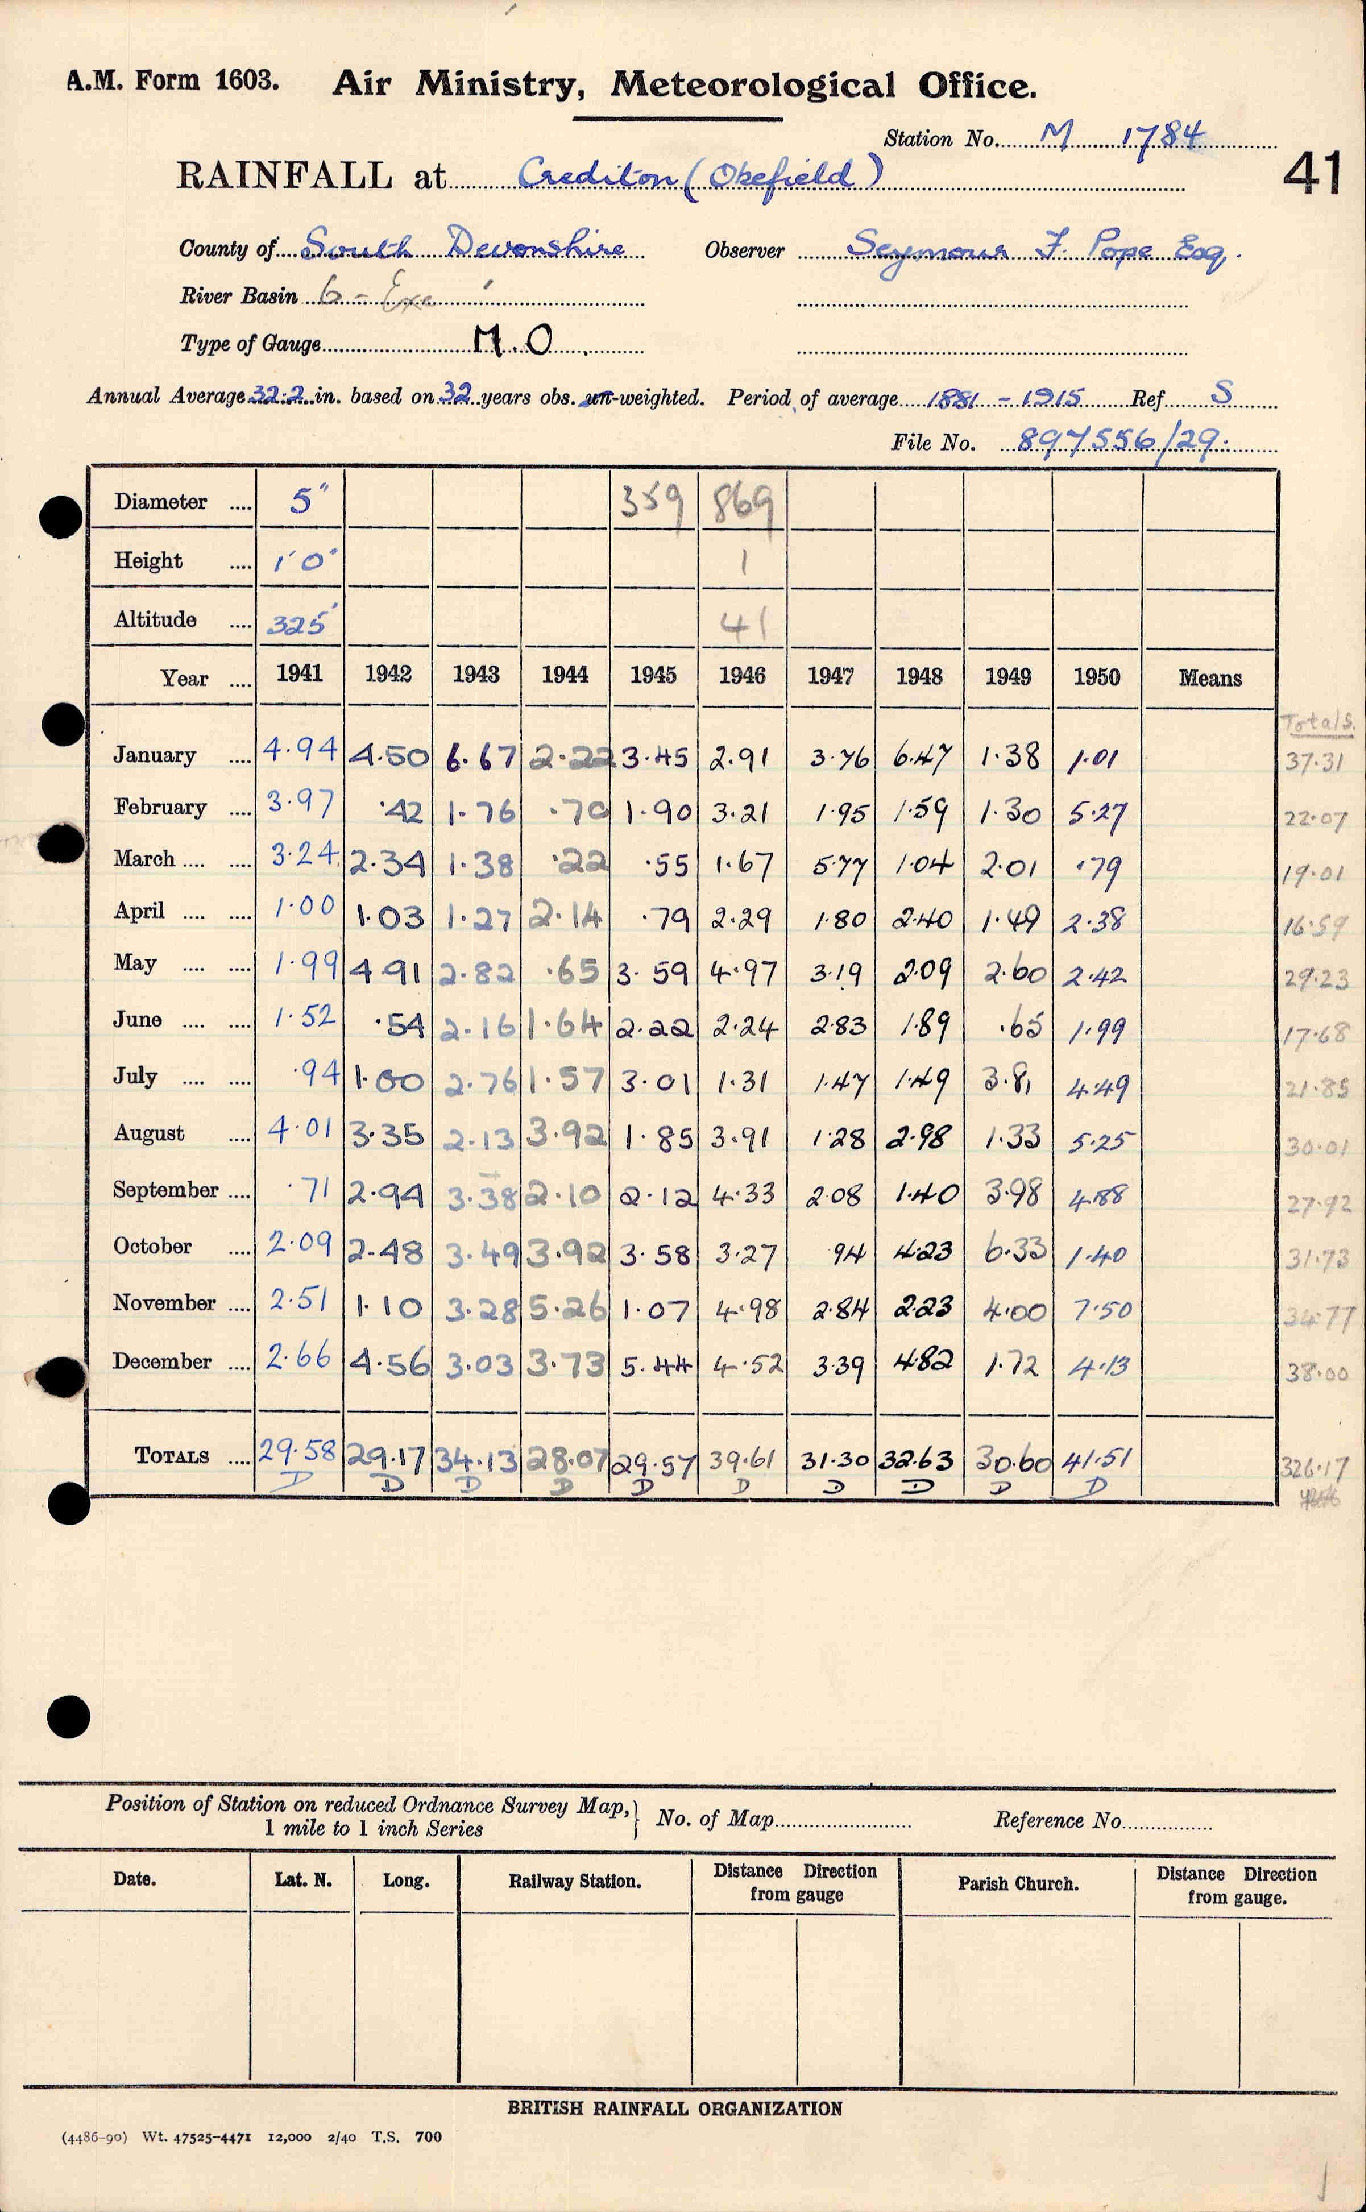 A.M. Form 1603. Air Ministry, Meteorological Office.
Station No. M 1784
41
RAINFALL at Crediton (Okefield)
County of South Devonshire Observer Seymour F. Pope Esq.
River Basin 6 - Exe
Type of Gauge M.O
Annual Average 32.2 in. based on 32 years obs. un-weighted. Period of average 1881 - 1915 Ref S
File No. 897556/29.
Diameter .... 5" 359 869
Height .... 1'0" 1
Altitude .... 325' 41
Year .... 1941 1942 1943 1944 1945 1946 1947 1948 1949 1950 Means
Totals.
January .... 4.94 4.50 6.67 2.22 3.45 2.91 3.76 6.47 1.38 1.01 37.31
February .... 3.97 .42 1.76 .70 1.90 3.21 1.95 1.59 1.30 5.27 22.07
March .... .... 3.24 2.34 1.38 .22 .55 1.67 5.77 1.04 2.01 .79 19.01
April .... .... 1.00 1.03 1.27 2.14 .79 2.29 1.80 2.40 1.49 2.38 16.59
May .... .... 1.99 4.91 2.82 .65 3.59 4.97 3.19 2.09 2.60 2.42 29.23
June .... .... 1.52 .54 2.16 1.64 2.22 2.24 2.83 1.89 .65 1.99 17.68
July .... .... .94 1.00 2.76 1.57 3.01 1.31 1.47 1.49 3.81 4.49 21.85
August .... 4.01 3.35 2.13 3.92 1.85 3.91 1.28 2.98 1.33 5.25 30.01
September .... .71 2.94 3.38 2.10 2.12 4.33 2.08 1.40 3.98 4.88 27.92
October .... 2.09 2.48 3.49 3.92 3.58 3.27 .94 4.23 6.33 1.40 31.73
November .... 2.51 1.10 3.28 5.26 1.07 4.98 2.84 2.23 4.00 7.50 34.77
December .... 2.66 4.56 3.03 3.73 5.44 4.52 3.39 4.82 1.72 4.13 38.00
TOTALS .... 29.58 29.17 34.13 28.07 29.57 39.61 31.30 32.63 30.60 41.51 326.17
D D D D D D D D D D
Position of Station on reduced Ordnance Survey Map, 1 mile to 1 inch Series } No. of Map Reference No.
Date. Lat. N. Long. Railway Station. Distance Direction from gauge Parish Church. Distance Direction from gauge.
BRITISH RAINFALL ORGANIZATION
(4486-90) Wt. 47525-4471 12,000 2/40 T.S. 700